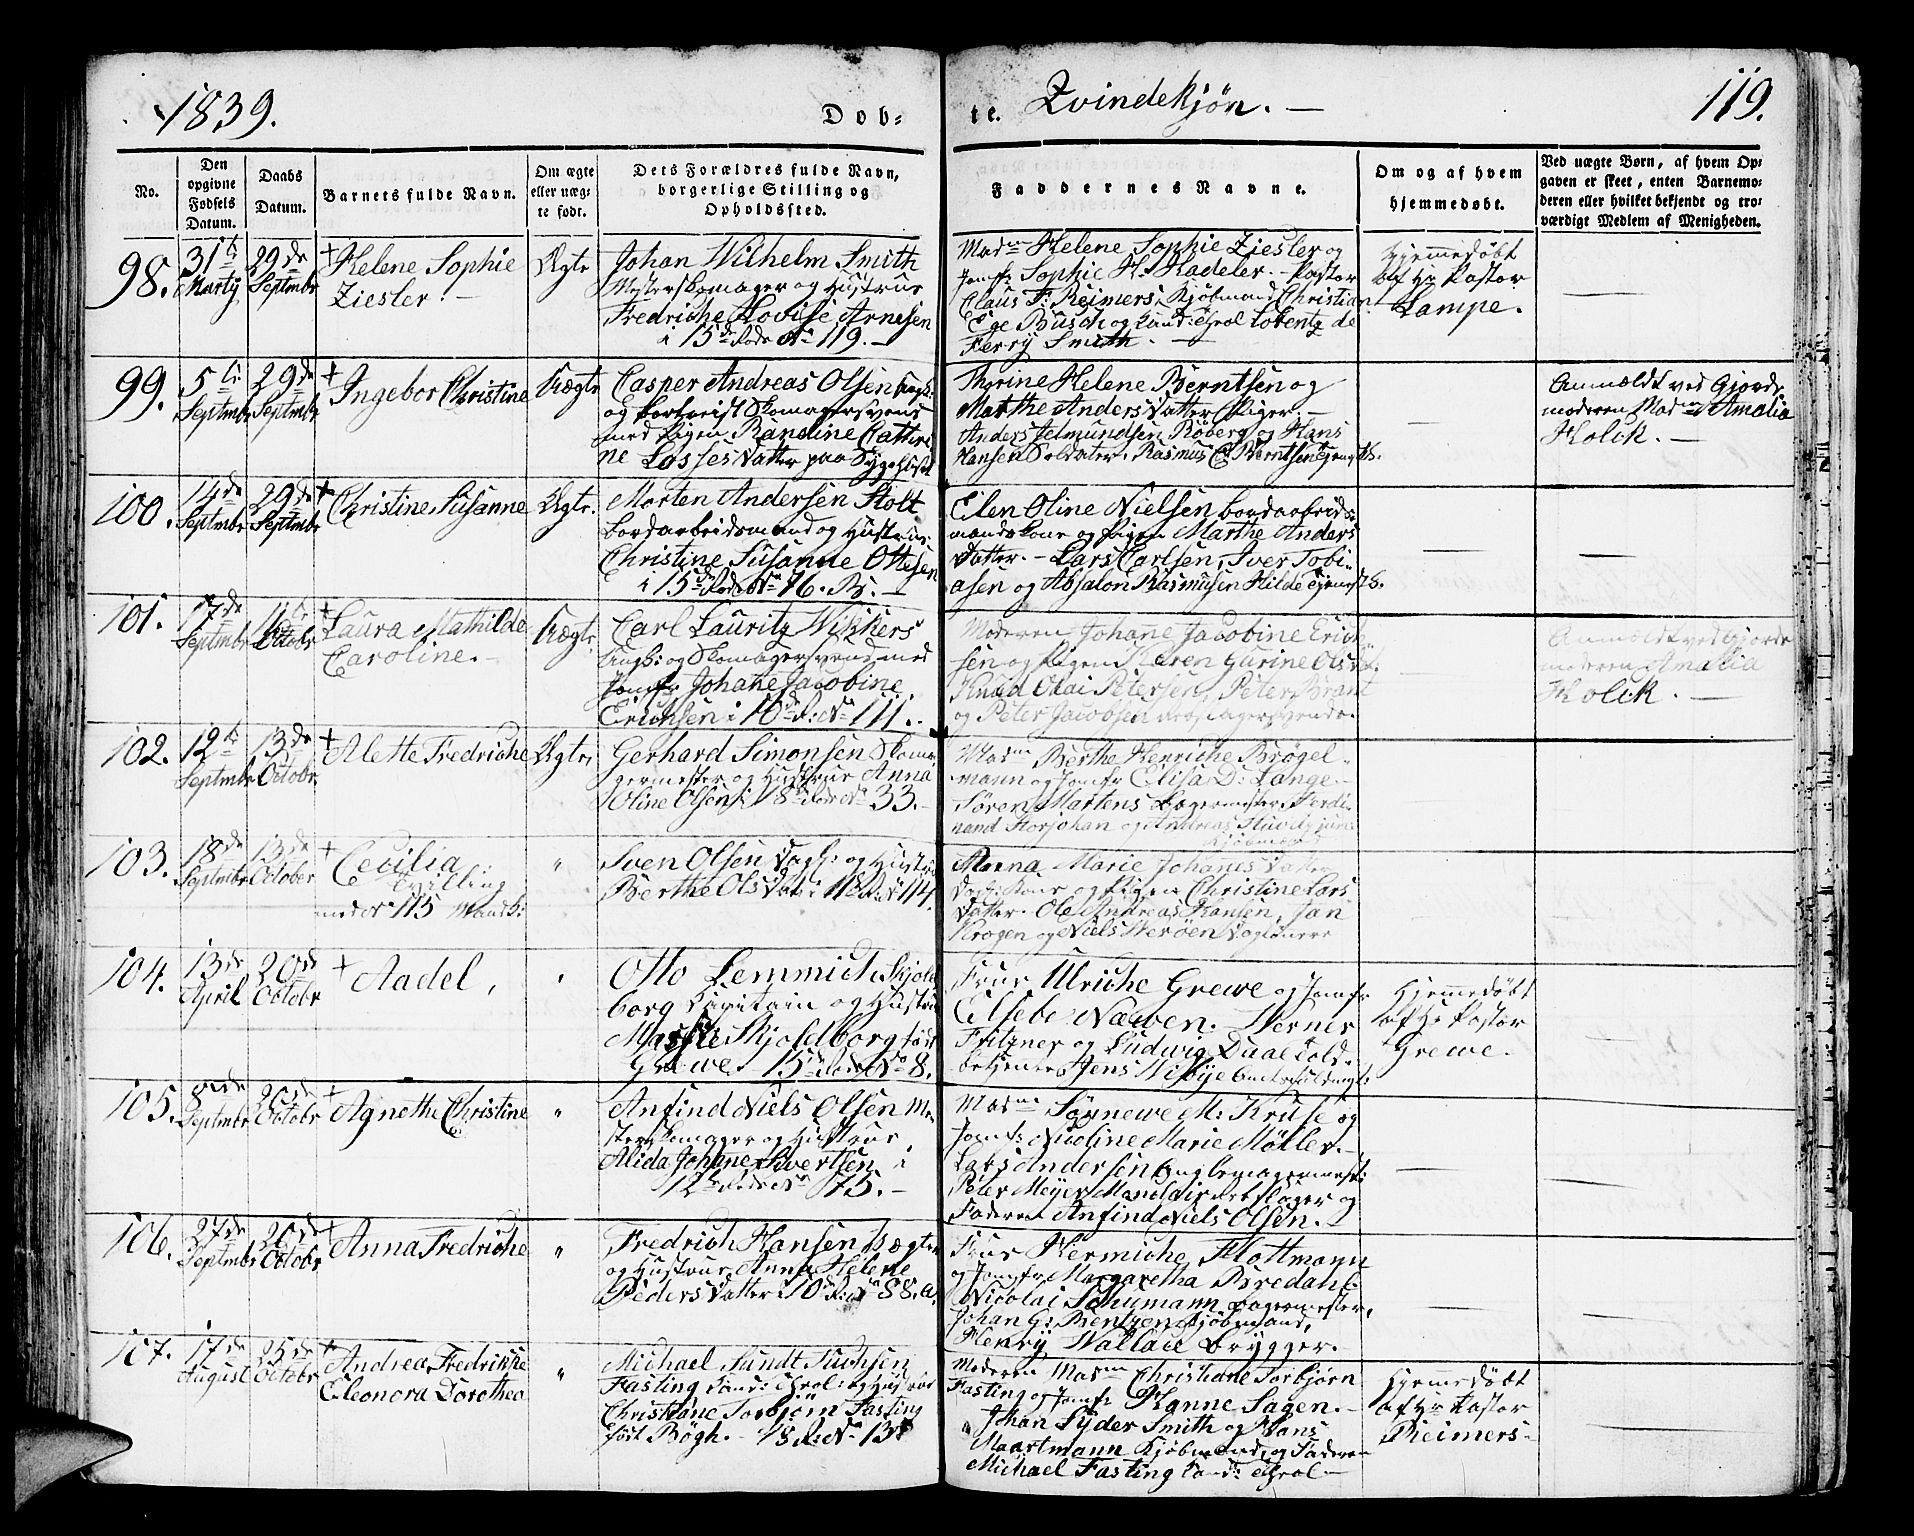 1839.
Døb-
te.
Qvindekjøn. —
119.
No.
Den opgivne Fødsels Datum.
Daabs Datum.
Barnets fulde Navn.
Om ægte eller uægte født.
Dets Forældres fulde Navn, borgerlige Stilling og Opholdssted.
Faddernes Navne.
Om og af hvem hjemmedøbt.
Ved uægte Børn, af hvem Opgaven er skeet, enten Barnemoderen eller hvilket bekjendt og troværdigt Medlem af Menigheden.
98.
31te Marty
29de Septmbr
+ Helene Sophie
Ziesler. —
Ægte
Johan Wilhelm Smith
Mesterskomager og Hustrue
Fredriche Lovise Arnesen
i 15de Rode No 119. —
Madme Helene Sophie Ziesler og
Jomfr Sophie H. Kadeler. — Pastor
Claus F. Reimers, Kjøbmand Christian
Ege Busch og Cand: theol Lobentz de
Ferry Smith. —
Hjemmedøbt
af Hr Pastor
Lampe.
99.
5te Septmbr
29de Septmbr
+ Ingebor Christine
Uægte
Casper Andreas Olsen Ungk:
og bortreist Skomagersvend
med Pigen Randine Cathri
ne Lasses Datter paa Sygehuset
Thorine Helene Berntsen og
Marthe Anders Datter Piger. —
Anders Helmundsen Røberg og Hans
Hansen Soldater. Rasmus C. Berntsen tjenestk.
Anmeldt ved Gjorde
moderen Madme Amalia
Holck. —
100.
14de Septmbr
29de Septmbr
+ Christine Susanne
Ægte.
Morten Andersen Holt
Bordarbeidsmand og Hustrue
Christine Susanne Ottesen
i 15de Rode No 76. B. —
Elen Oline Nielsen bordarbeids
mandskone og Pigen Marthe Anders
Datter. — Lars Carlsen, Iver Tobi-
asen og Absalon Rasmusen Hilde tjenestk.
101.
17de Septmbr
11te Octobr
+ Laura Mathilde
Caroline. —
Uægte.
Carl Lauritz Wikkers
Ungk: og Skomagersvend med
Jomfr Johane Jacobine
Erichsen i 10de R: No 111.
Moderen Johane Jacobine Erich
sen og Pigen Karen Gurine Olsen.
Knud Okai Petersen, Peter Brant
og Peter Jacobsen Skomagersvende.
Anmeldt ved Gjorde
moderen Amalia
Holck. —
102.
12te Septmbr
13de Octobr.
+ Alette Fredriche
Ægte,
Gerhard Simonsen Skoma
germester og Hustrue Anna
Oline Olsen i 18de Rode No 33. —
Madme Berthe Henriche Brøgel-
mann og Jomfr Elisa D: Lange. —
Søren Martens Bagermester, Ferdi-
nand Storjohan og Andreas
Kjøbmænd
103.
18de Septmbr
13de October
+ Cecilia
Tvilling
med No 115 Mandk:
"
Sven Olsen Dagk: og Hustrue
Berthe Ols Datter i 11te R: No 114.
Anna Marie Johanes Datter
Dagk: Kone og Pigen Christine Lars
Datter. Ole Andreas Hansen, Jan
Krogen og Niels Herøen Daglønere
104.
13de April
20de Octobr
+ Aadel,
"
Otto Lemmich Skjold
borg Capitain og Hustrue
Skjoldborg født
Grewe. 15de Rode No 8.
Frue Ulriche Grewe og Jomfr
Elsebe Næwen. Werner
Fritzner og Ludwig Daae Told-
betjenter, Jens Nibye
Hjemmedøbt
af Hr Pastor
Grewe.
105.
8de Septmbr
20de Octobr
+ Agnethe Christine
"
Anfind Niels Olsen Me
sterskomager og Hustrue
Alida Johane Sivertsen i
12te Rode No 75. —
Madme Synnewe M: Kruse og
Jomfr: Nicoline Marie Møller. —
Lars Andersen
Peter Meyer Mandal og
Faderen Anfind Niels Olsen.
106.
27de Septmbr
20de Octobr
+ Anna Fredriche
"
Fredrich Hansen Vægter
og Hustrue Anna Helene
Peders Datter i 10de R: No 88. a.
Frue Hermiche Flottmann
og Jomfr Margaretha Bredahl.
Nicolai Schumann Bagermester,
Johan G: Bentzen Kjøbmand,
Henry Wallace Brygger. —
107.
17de August
25de Octobr
+ Andrea Fredrikke
Eleonora Dorothea
"
Michael Sundt Tuchsen
Fasting Cand: theol: og Hustrue
Christiane Torbjørn Fasting
født Bøgh. — 18 R: No 13.
Moderen Madme Christiane Torbjørn
Fasting og Jomfr Hanne Sagen. —
Johan Lyder Smith og Hans
Maartmann Kjøbmænd, og Faderen
Michael Fasting Cand: theol —
Hjemmedøbt
af Hr Pastor
Reimers